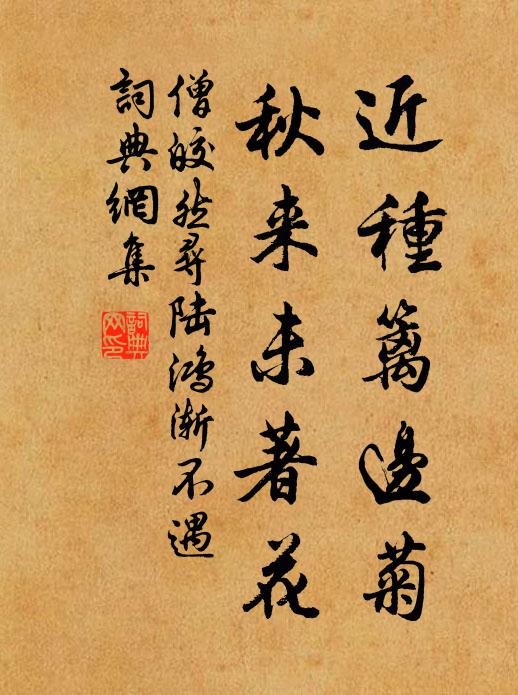 近種籬邊菊
秋来未著花
僧皎然尋陸鴻漸不遇
詞典網集
詞典网印